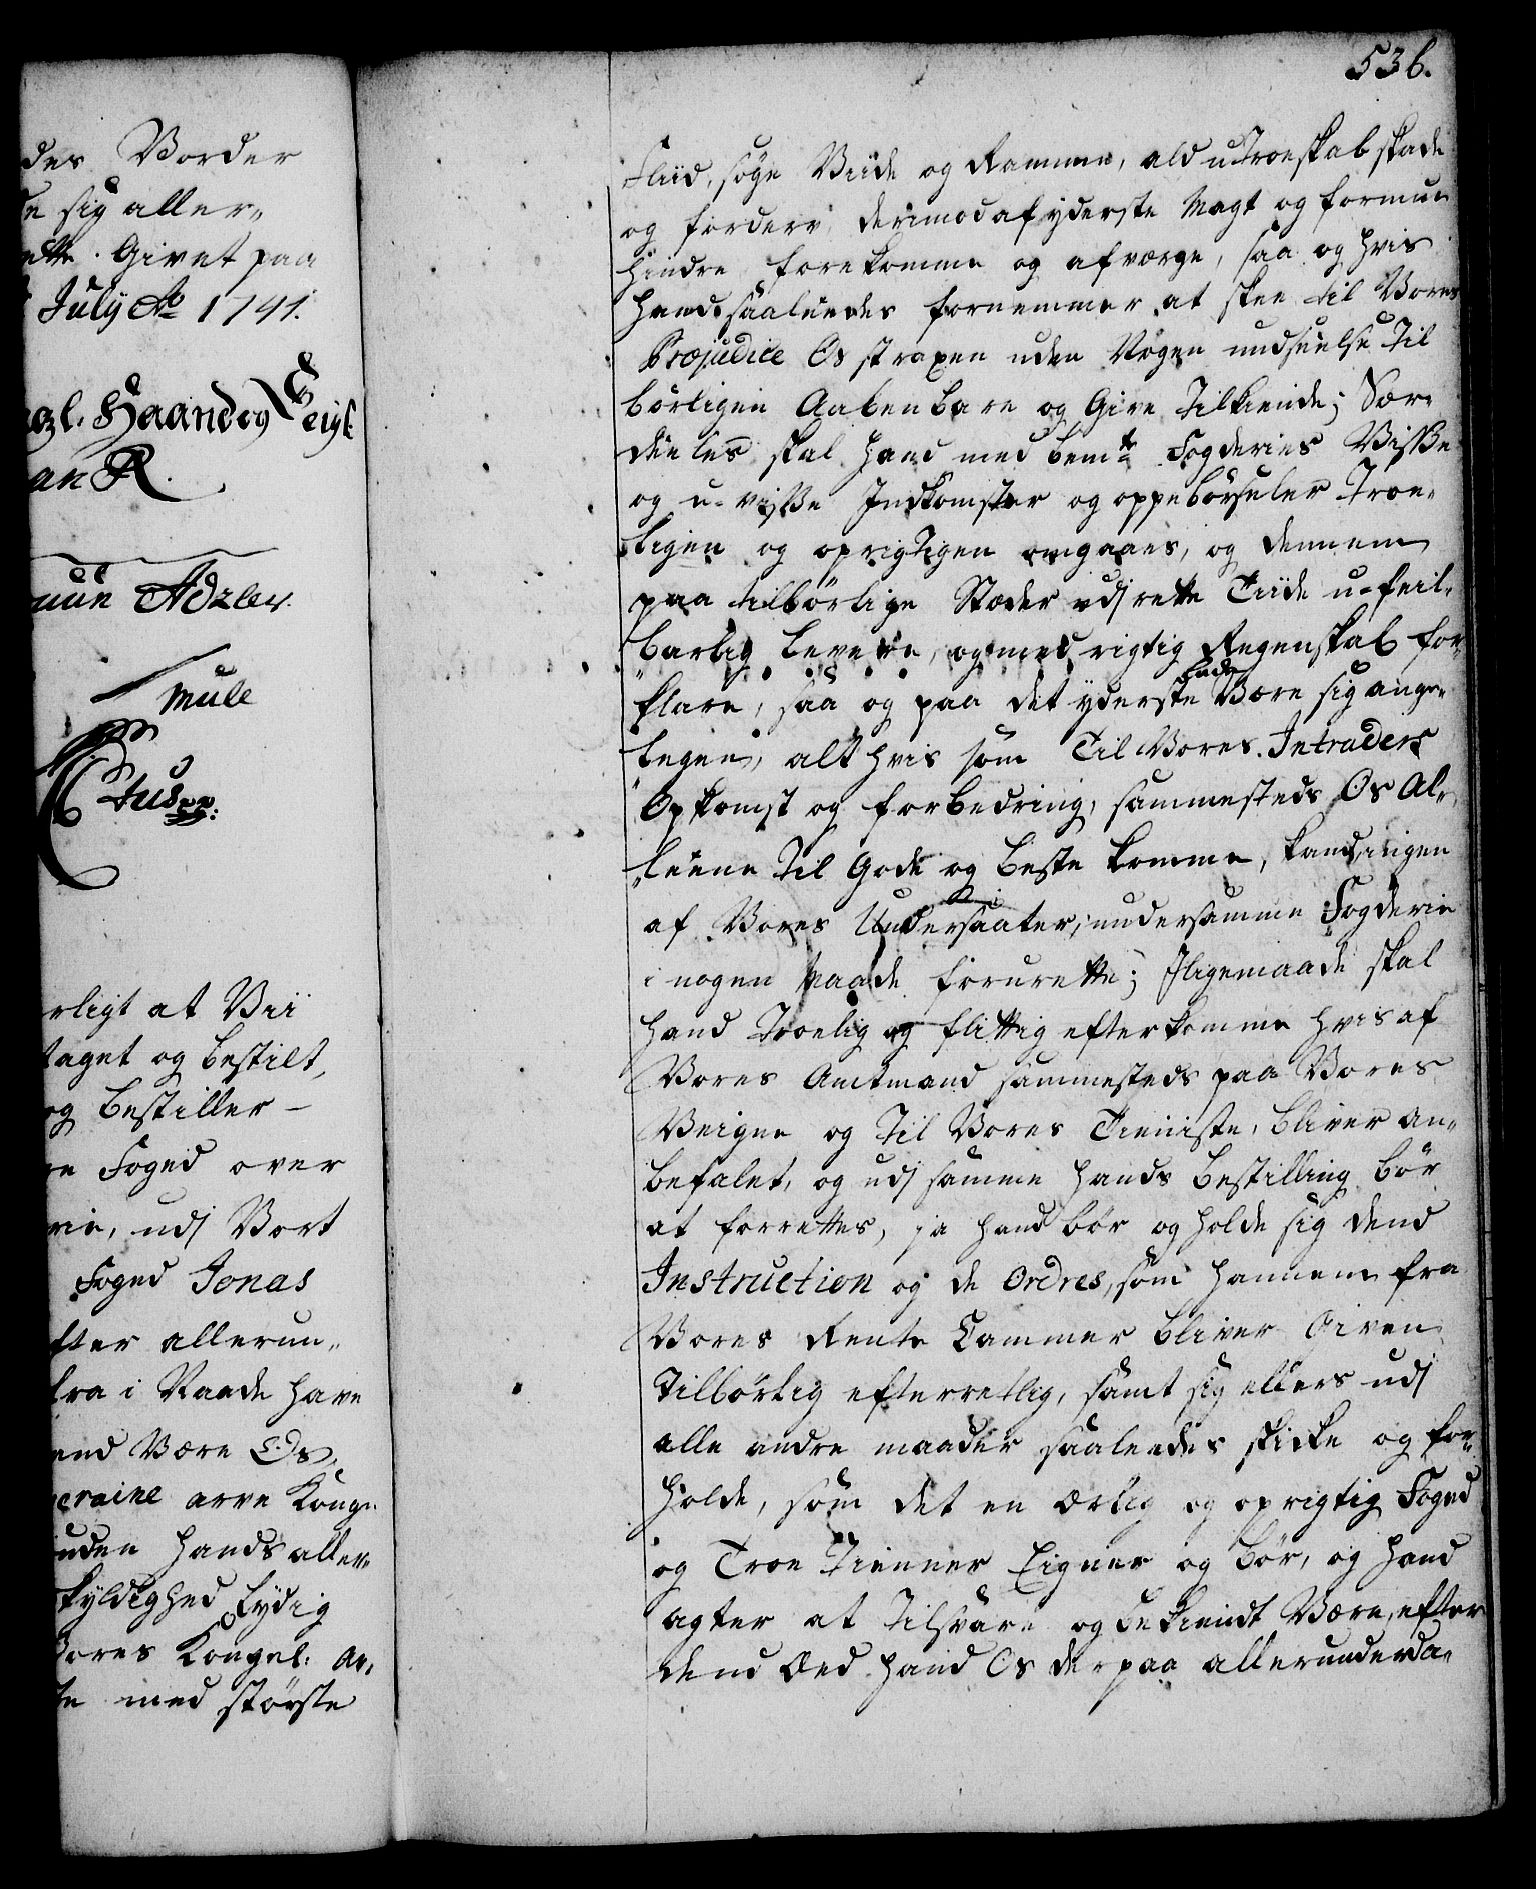 des Vorder
e sig aller„
ette. Givet paa
July Ao 1741.
gl. Haand og Seigl
an R.
Adeler.
Mule
rligt at Vii
taget og bestilt,
og bestiller –
re Foged over
rie, udj Vort
Foged Jonas
fter allerun„
tra i Naade have
and Være Os,
eraine arve Kong„
uden hands aller„
skyldighed lydig
Vores Kongel: Ar„
te med største
536.
Fliid, søge Viide og Ramme, ald utroeskab skade
og forderv, derimod af yderste Magt og formue
hindre forekomme og afværge, saa og hvis
hand saaleedes fornemmer at skee til Vores
Præjudice Os straxen uden Nogen undseelse Til
børligen Aabenbare og Give tilkiende; Sær„
deeles skal hand med bemte Fogderies Visse
og u-visse Indkomster og oppebørseler Troe„
ligen og oprigtigen omgaaes, og dennem
paa tilbørlige Stæder udj rette Tiide u-feil„
barlig levere, og med rigtig Regenskab for„
klare, saa og paa det yderste lade Være sig ange„
legen, alt hvis som Til Vores Intraders
Opkomst og forbedring, sammesteds Os Al„
leene til Gode og beste komme, kand, ingen
af Vores Undersaater, i undersamme Fogderie
i nogen Maade forurette; Iligemaade skal
hand Troelig og flittig efterkomme hvis af
Vores Amtmand sammesteds paa Vores
Veigne og til Vores Tieniste, bliver an„
befalet, og udj samme hands bestilling bør
at forrettes, ja hand bør og holde sig dend
Instruction og de Ordres, som hannem fra
Vores Rente Cammer bliver Given
Tilbørlig efterretlig, samt sig ellers udj
alle andre maader saaleedes skicke og for„
holde, som det en ærlig og oprigtig Foged
og Troe Tienner Eigner og bør, og hand
agter at tilsvare og bekiendt Være, efter
dend Eed hand Os derpaa allerunderda„